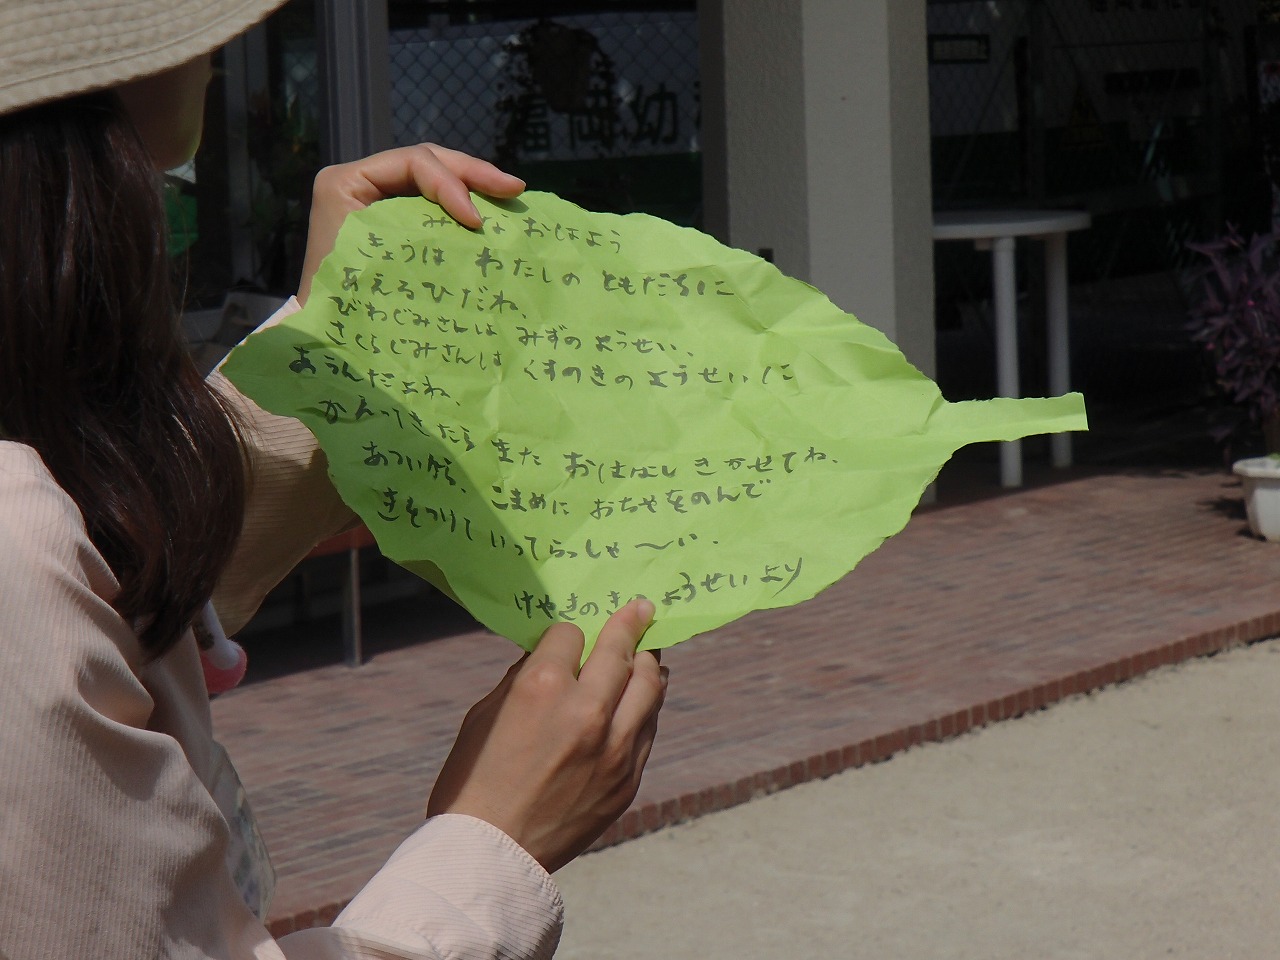 福岡幼
みんな おはよう
きょうは わたしの ともだちに
あえるひだね、
びわぐみさんは みずの ようせい、
さくらぐみさんは くすのきの ようせいに
あうんだよね、
かえってきたら また おはなし きかせてね、
あついから、こまめに おちゃをのんで
きをつけて いってらっしゃ〜い.
けやきのきの ようせいより